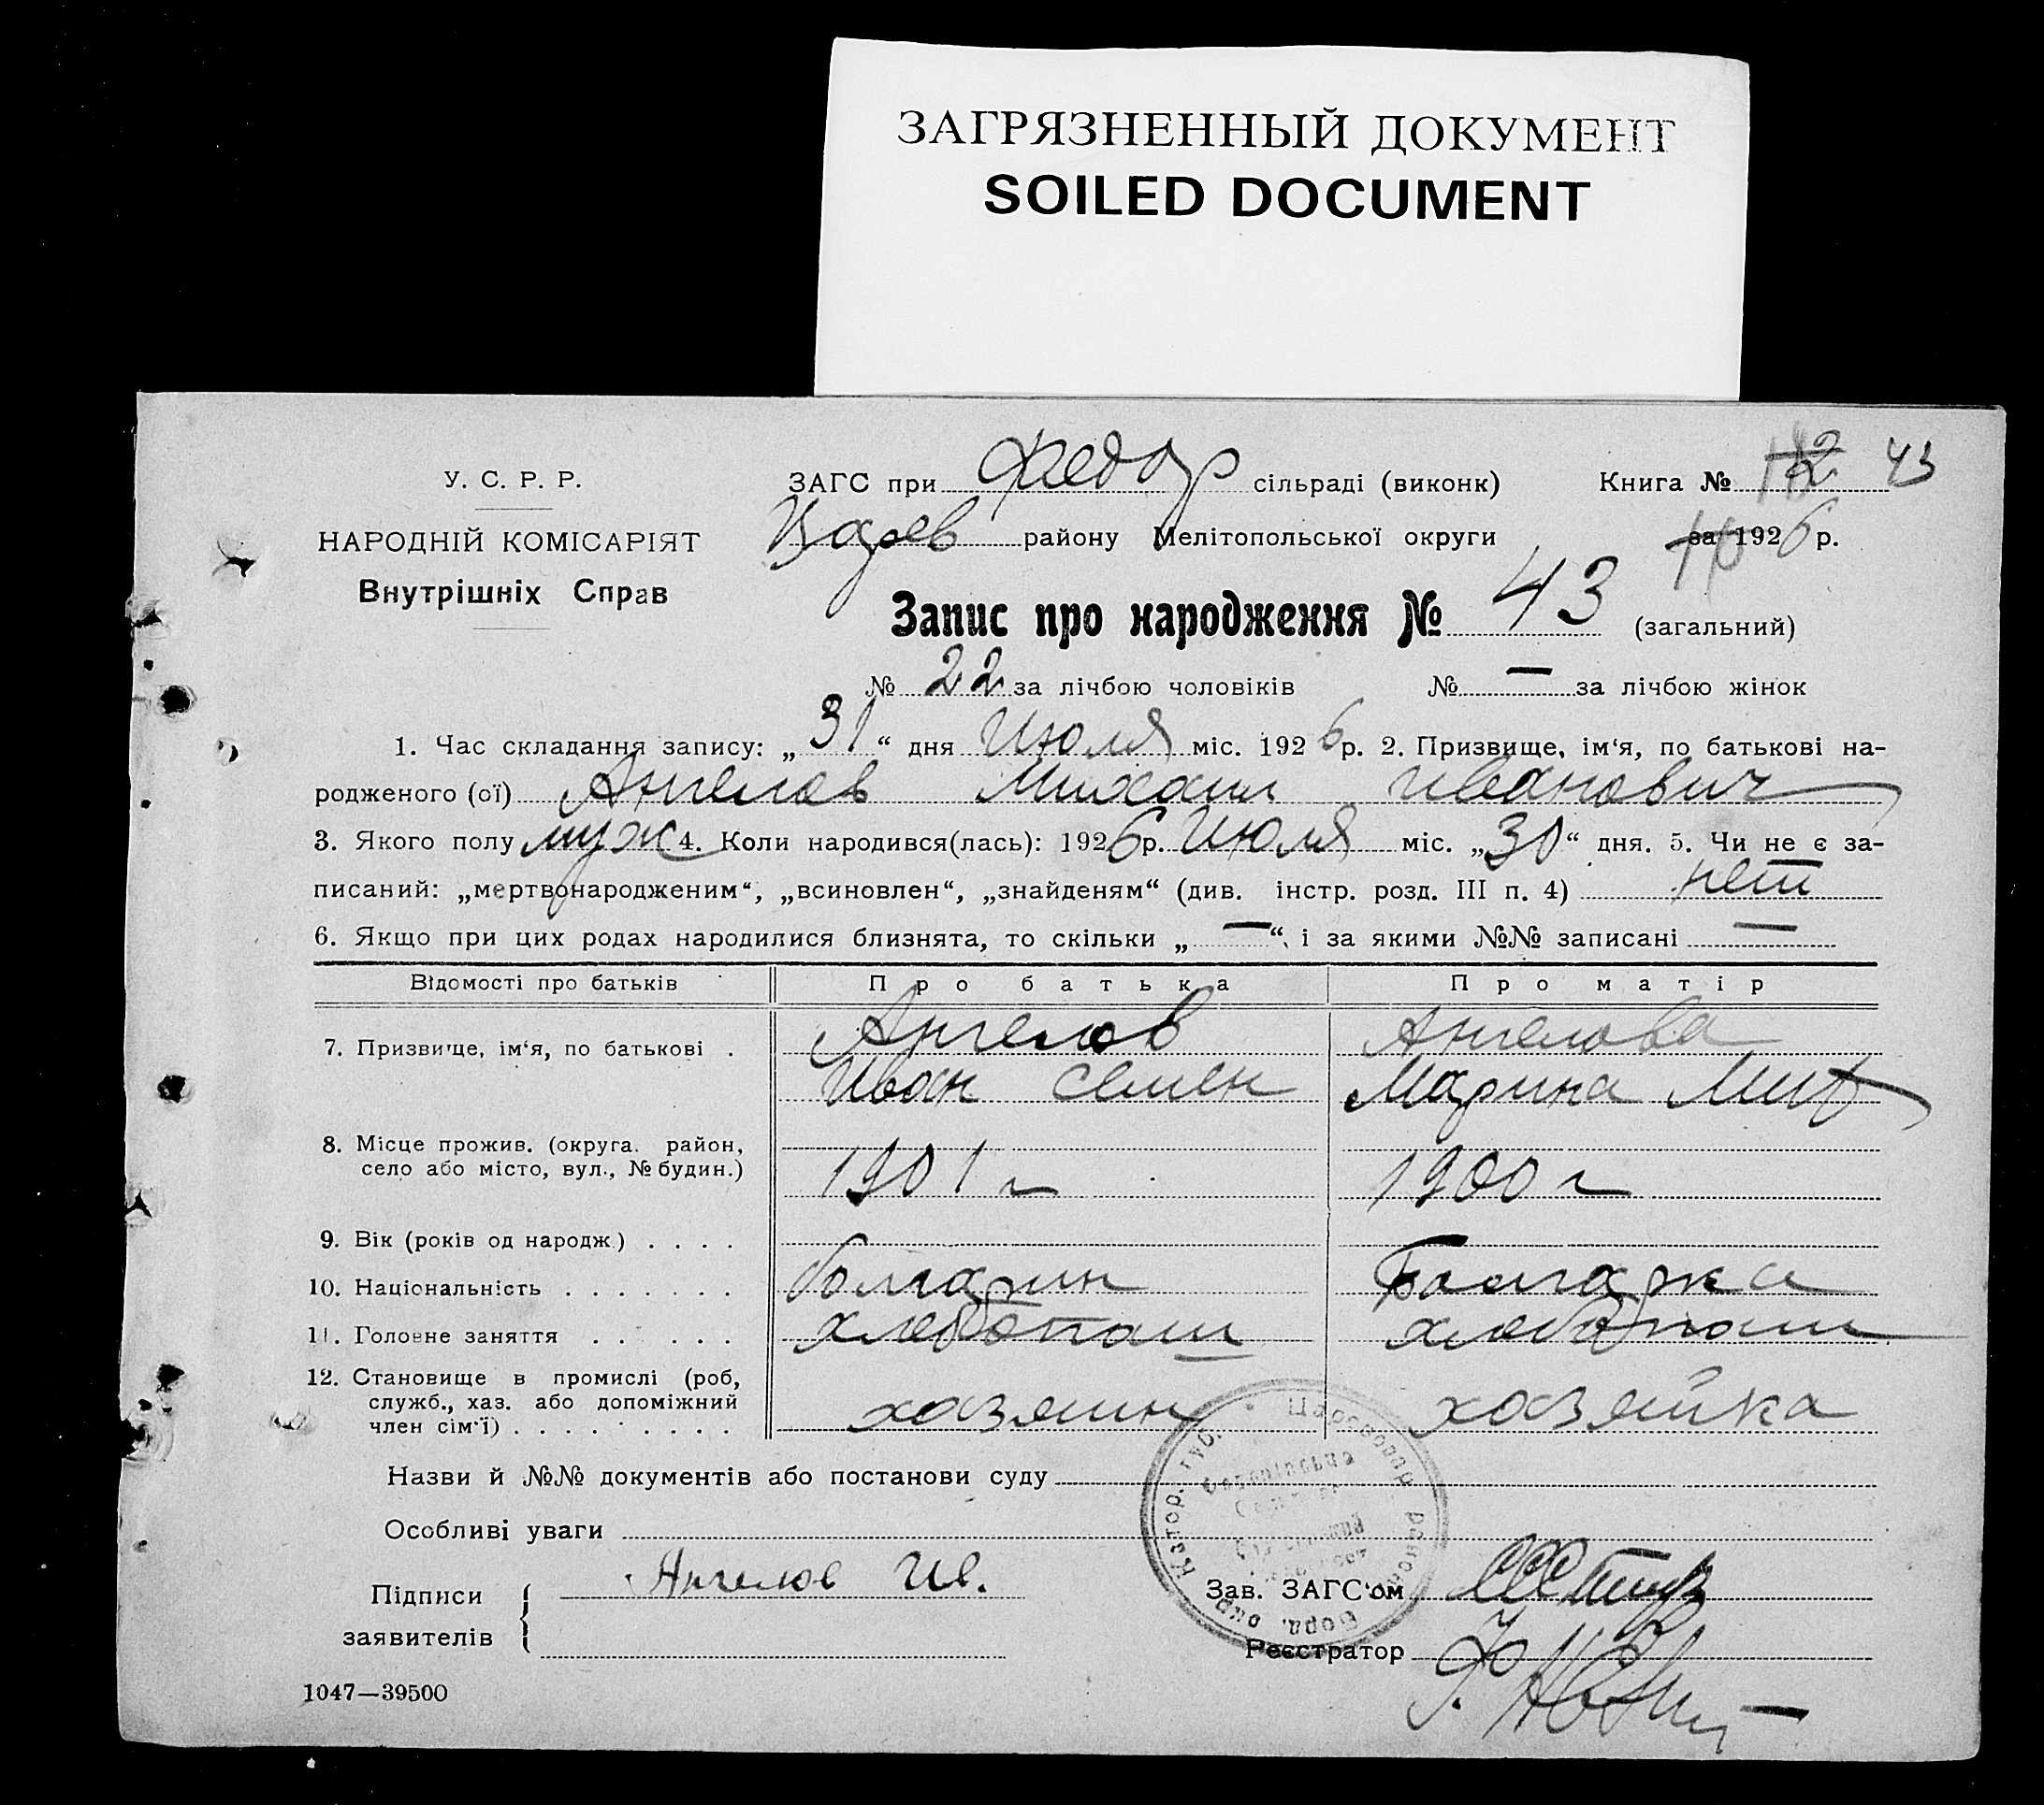 ЗАГРЯЗНЕННЫЙ ДОКУМЕНТ
SOILED DOCUMENT
У. С. Р. Р.
НАРОДНІЙ КОМІСАРІЯТ
Внутрішніх Справ
ЗАГС при Федор сільраді (виконк) Книга № 43
Царев району Мелітопольської округи за 1926 р.
Запис про народження № 43 (загальний)
№ 22 за лічбою чоловіків № — за лічбою жінок
1. Час складання запису: „31“ дня Июля міс. 1926 р. 2. Призвище, ім‘я, по батькові на-
родженого (ої) Ангелов Михаил Иванович
3. Якого полу муж 4. Коли народився(лась): 1926 р. Июля міс. „30“ дня. 5. Чи не є за-
писаний: „мертвонародженим“, „всиновлен“, „знайденям“ (див. інстр. розд. III п. 4) нет
6. Якщо при цих родах народилися близнята, то скільки „—“, і за якими №№ записані —
Відомості про батьків Про батька Про матір
7. Призвище, ім‘я, по батькові . Ангелов Ангелова
Иван Семен Марина Мит
8. Місце прожив. (округа. район,
село або місто, вул., № будин.) 1901 г 1900 г
9. Вік (років од народж.) . . . .
10. Національність . . . . . . . болгарин Болгарка
11. Головне заняття . . . . . . хлебопаш хлебопаш
12. Становище в промислі (роб,
служб., хаз. або допоміжний
член сім‘ї) . . . . . . . . . хозяин хозяйка
Назви й №№ документів або постанови суду
Особливі уваги
Підписи
заявителів
Ангелов Ив.
Зав. ЗАГС‘ом
Реєстратор
1047—39500